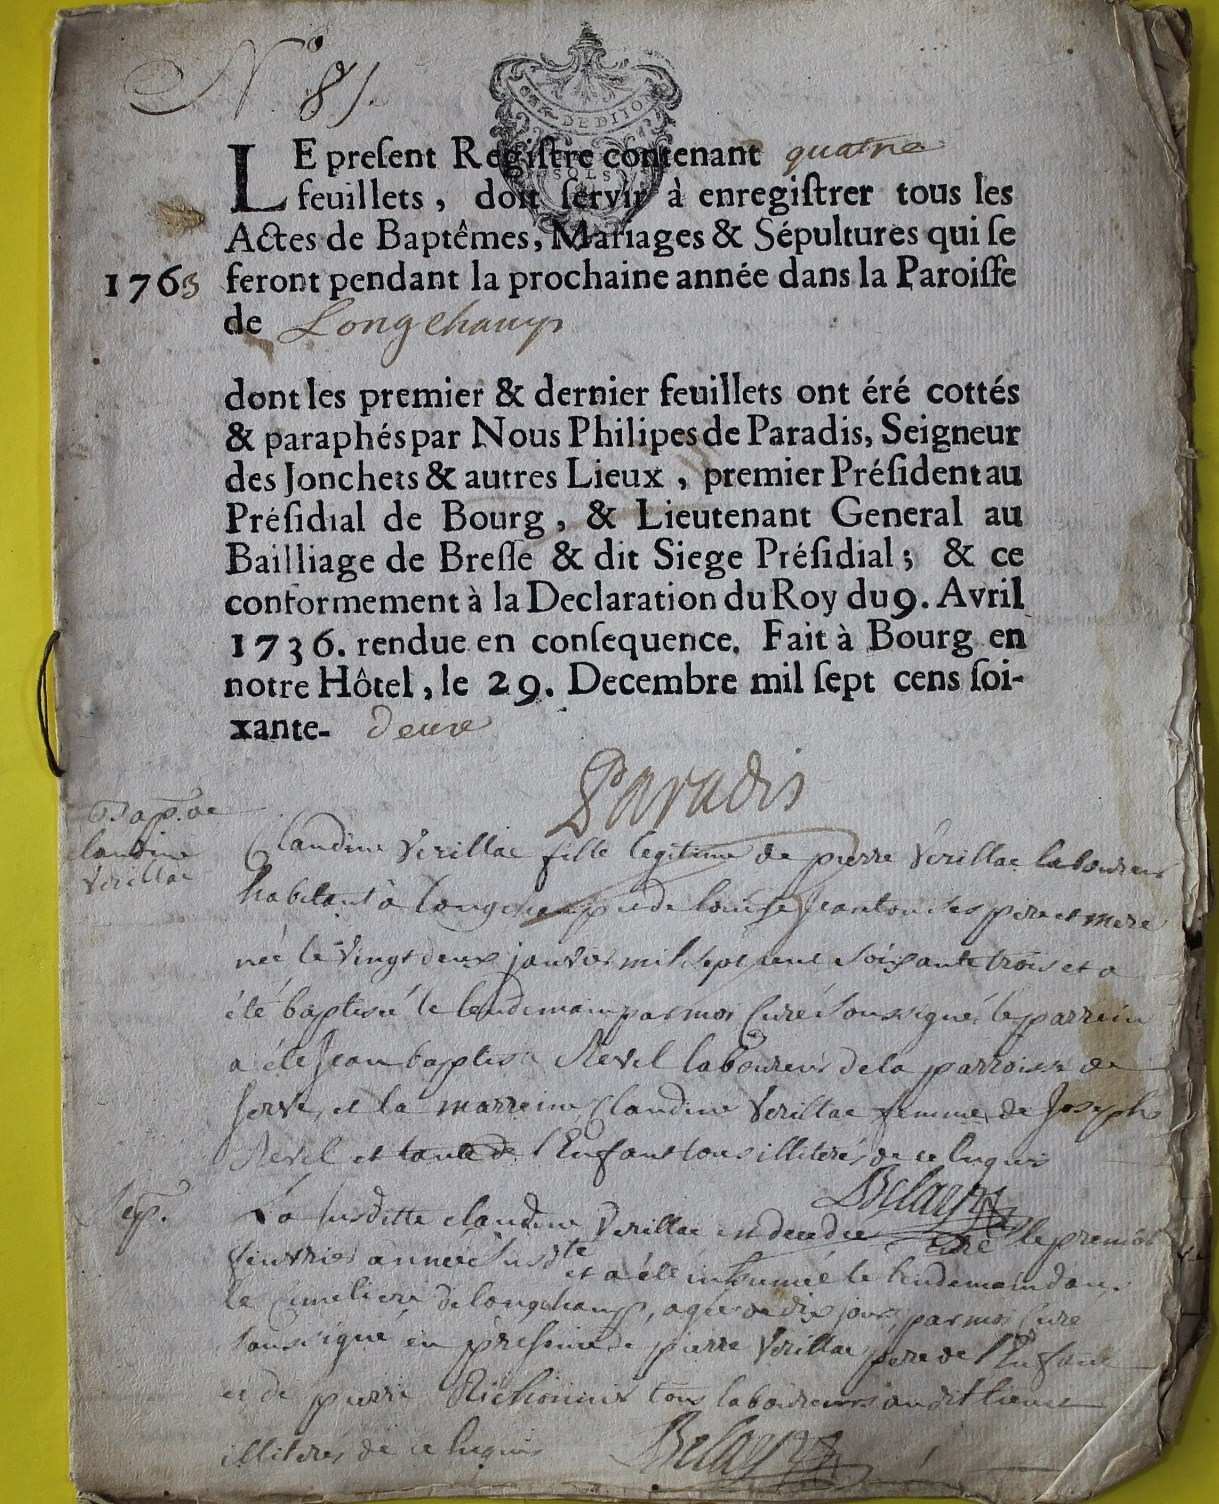 N.º 81.
GEN. DE DIJON
SOLS
LE preſent Regiſtre contenant quatre
feuillets, doit ſervir à enregiſtrer tous les
Actes de Baptêmes, Mariages & Sépultures qui ſe
1763 feront pendant la prochaine année dans la Paroiſſe
de Longchamp
dont les premier & dernier feuillets ont éré cottés
& paraphés par Nous Philipes de Paradis, Seigneur
des Jonchets & autres Lieux, premier Préſident au
Préſidial de Bourg, & Lieutenant General au
Bailliage de Breſſe & dit Siege Préſidial; & ce
conformement à la Declaration du Roy du 9. Avril
1736. rendue en conſequence. Fait à Bourg en
notre Hôtel, le 29. Decembre mil ſept cens ſoi-
xante- deux
Paradis
Bap. de
Claudine
Verillac
Claudine Verillac fille legitime de pierre Verillac laboureur
habitant à Longchamp et de Louise Jeanton ses pere et mere
née le vingt deux janvier mil sept cent soixante trois et a
été baptisée le lendemain par moi Curé soussigné, le parrein
a été Jean baptiste Revel laboureur de la parroisse de
Serve, et la marreine Claudine Verillac femme de Joseph
Revel et tante de l'Enfant tous illiterés de ce enquis
Belay
curé
Sep.
La susditte claudine Verillac est decedée le premier
feuvrier année susdte et a été inhumée le lendemain dans
le Cimetiere de longchamp, agée de dix jours, par moi Curé
soussigné en presence de pierre Verillac pere de l'Enfant
et de pierre Richonnier tous laboureurs audit lieu
illiterés de ce enquis Belay